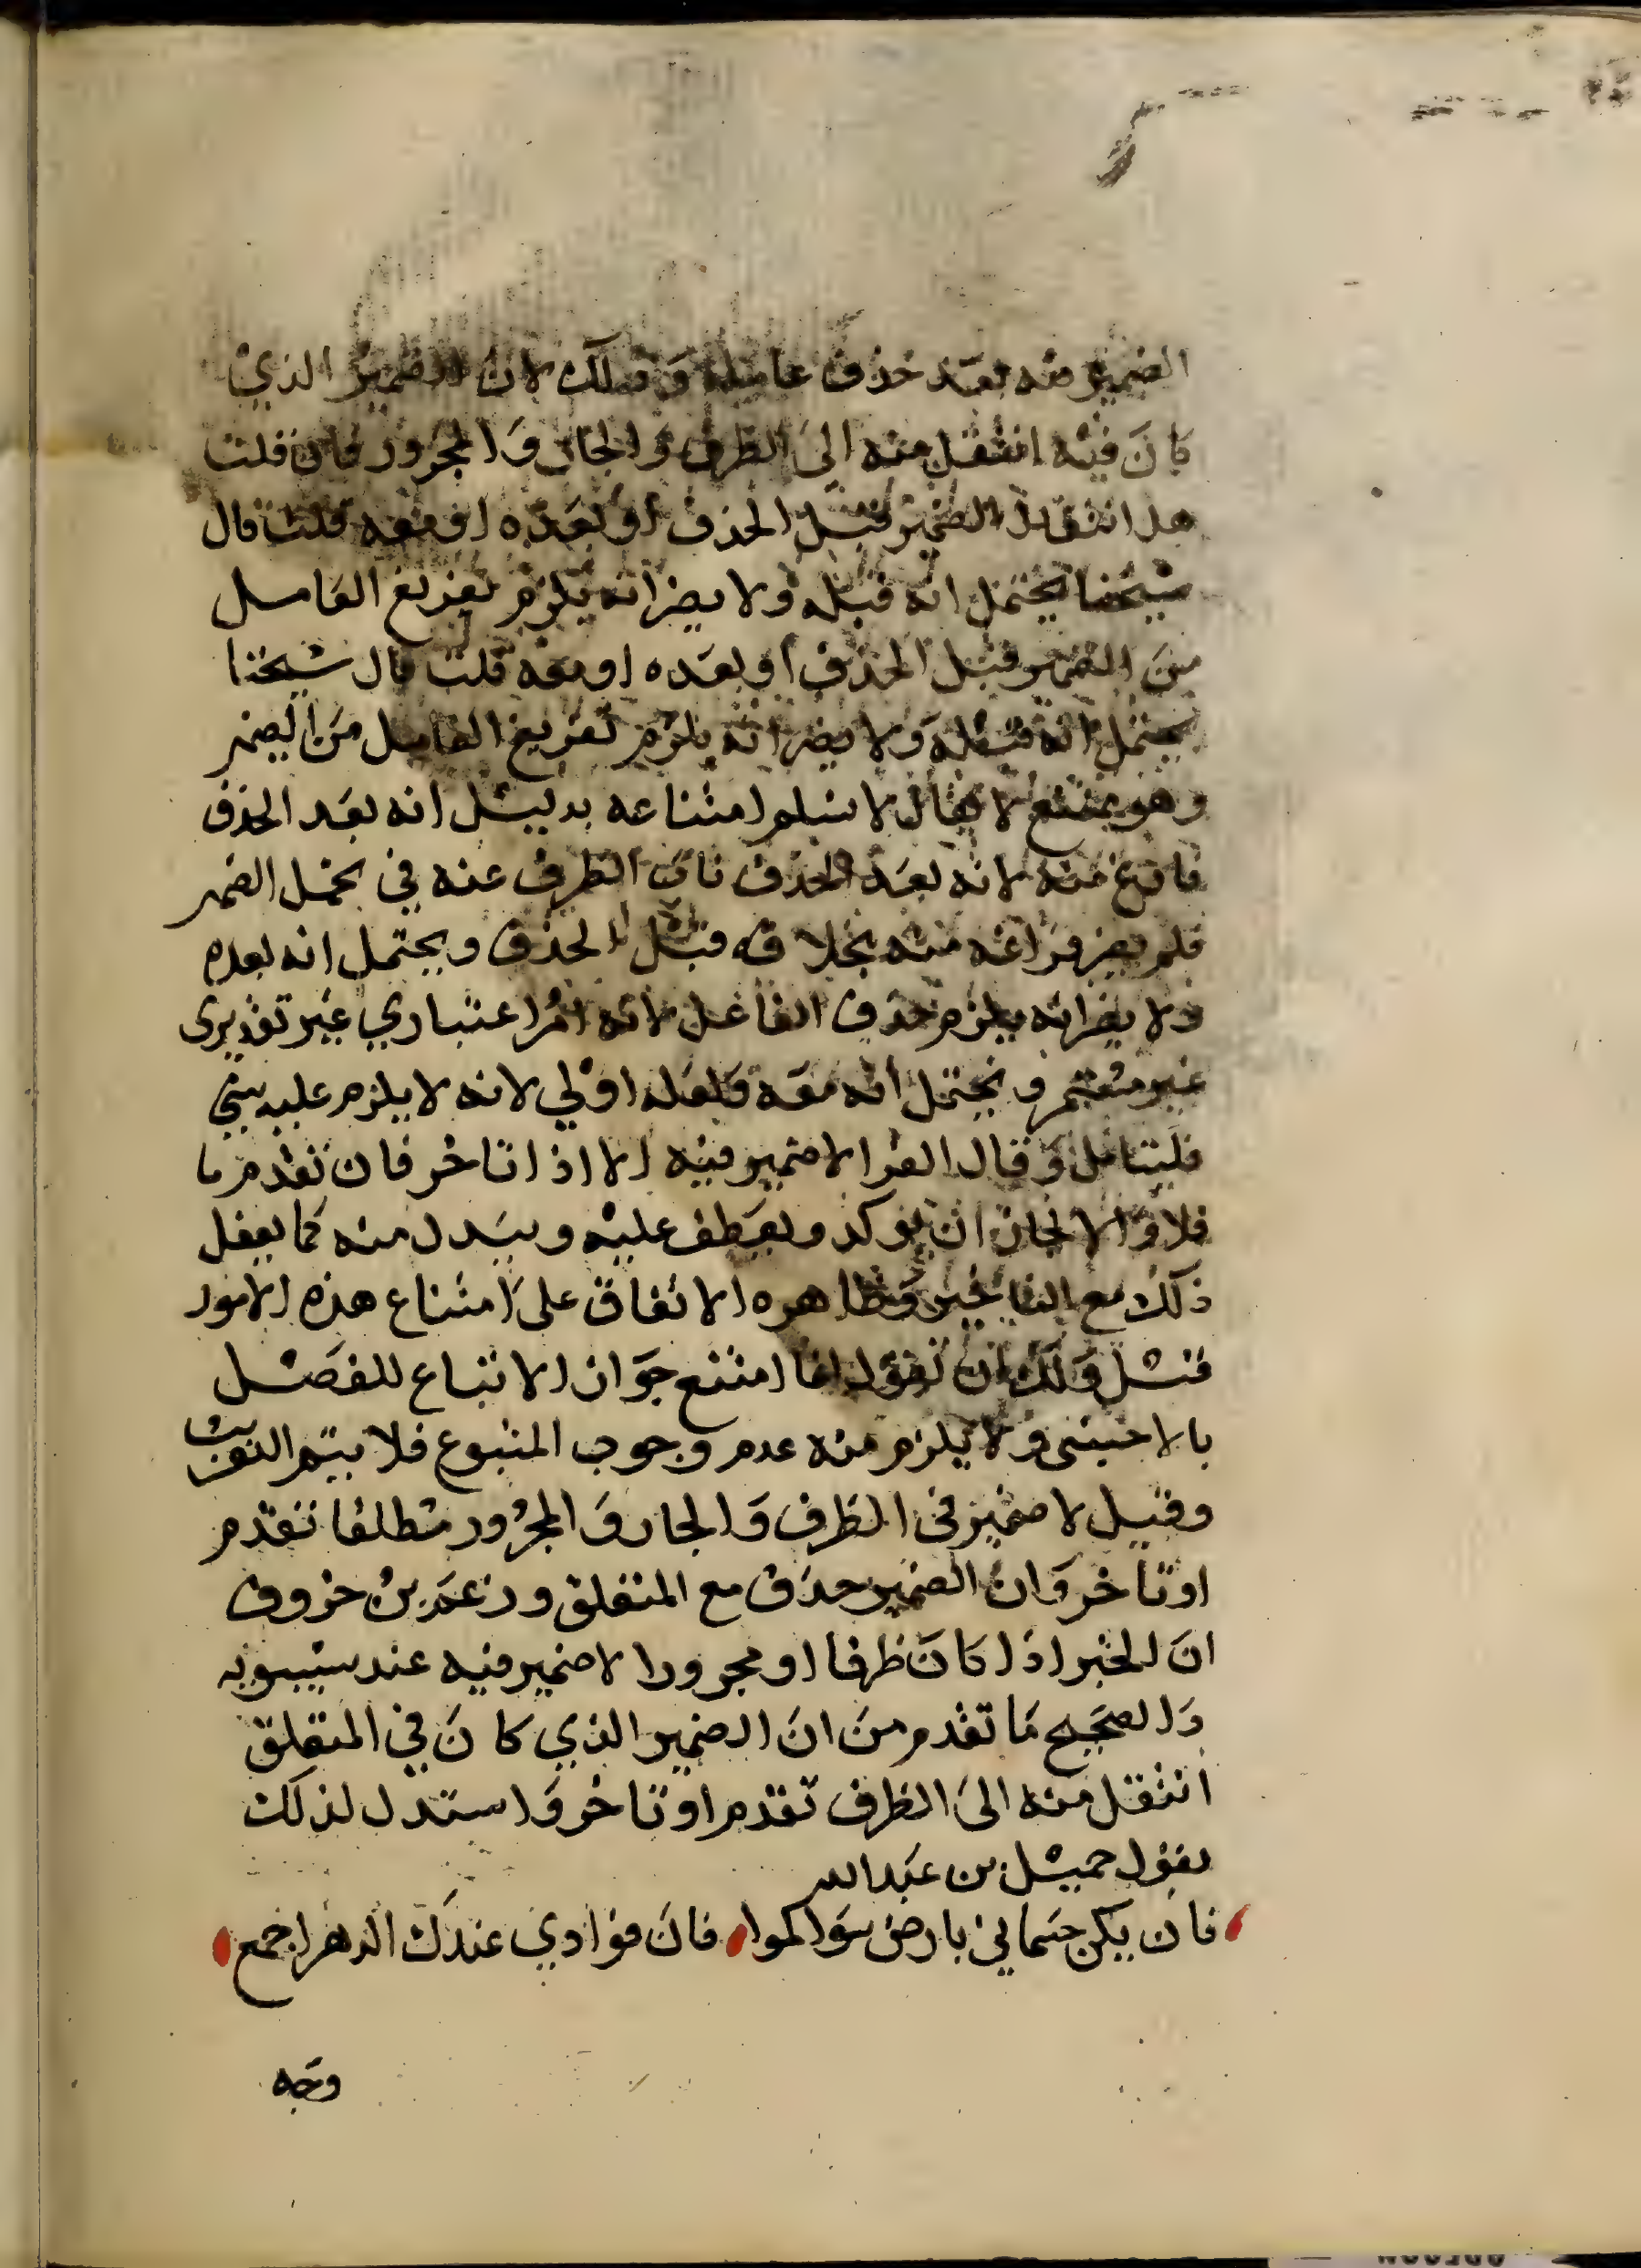 الضمير منه بعد حذف عامله وذلك لان الضمير الذي
كان فيه انتقل منه الى الظرف والجار والمجرور فان قلت
هل انتقال الضمير قبل الحذف او بعده او معه قلت قال
شيخنا يحتمل انه قبله ولا يضر انه يلزم تفريغ العامل
من الضمير قبل الحذف او بعده او معه قلت قال شيخنا
يحتمل انه قبله ولا يضر انه يلزم تفريغ العامل من الضمير
وهو ممتنع لا يقال لا نسلم امتناعه بدليل انه بعد الحذف
فارغ منه لانه بعد الحذف ناب الظرف عنه في تحمل الضمير
فلم يضر فراغه منه بخلافه قبل الحذف ويحتمل انه بعده
ولا يضر انه يلزم حذف الفاعل لانه امر اعتباري غير تقديرى
غير ويحتمل انه معه ولعله اولي لانه لا يلزم عليه شي
فليتامل وقال الفرا لا ضمير فيه الا اذا تاخر فان تقدم ما
فلا والا لجاز ان يوكد ويعطف عليه ويبدل منه كما يفعل
ذلك مع التاخير وظاهره الاتفاق على امتناع هذه الامور
قيل ولك ان تقول انما امتنع جواز الاتباع للفصل
بالاجنبى ولا يلزم منه عدم وجوب المتبوع فلا يتم التقريب
وقيل لا ضمير فى الظرف والجار والمجرور مطلقا تقدم
او تاخر وان الضمير حذف مع المتعلق وزعم بن خروف
ان الخبر اذا كان ظرفا او مجرورا لا ضمير فيه عند سيبويه
والصحيح ما تقدم من ان الضمير الذي كان في المتعلق
انتقل منه الى الظرف تقدم او تاخر واستدل لذلك
بقول جميل بن عبد الله
فان يكن جثماني بارض سواكموا فان فوادي عندك الدهر اجمع
وجه